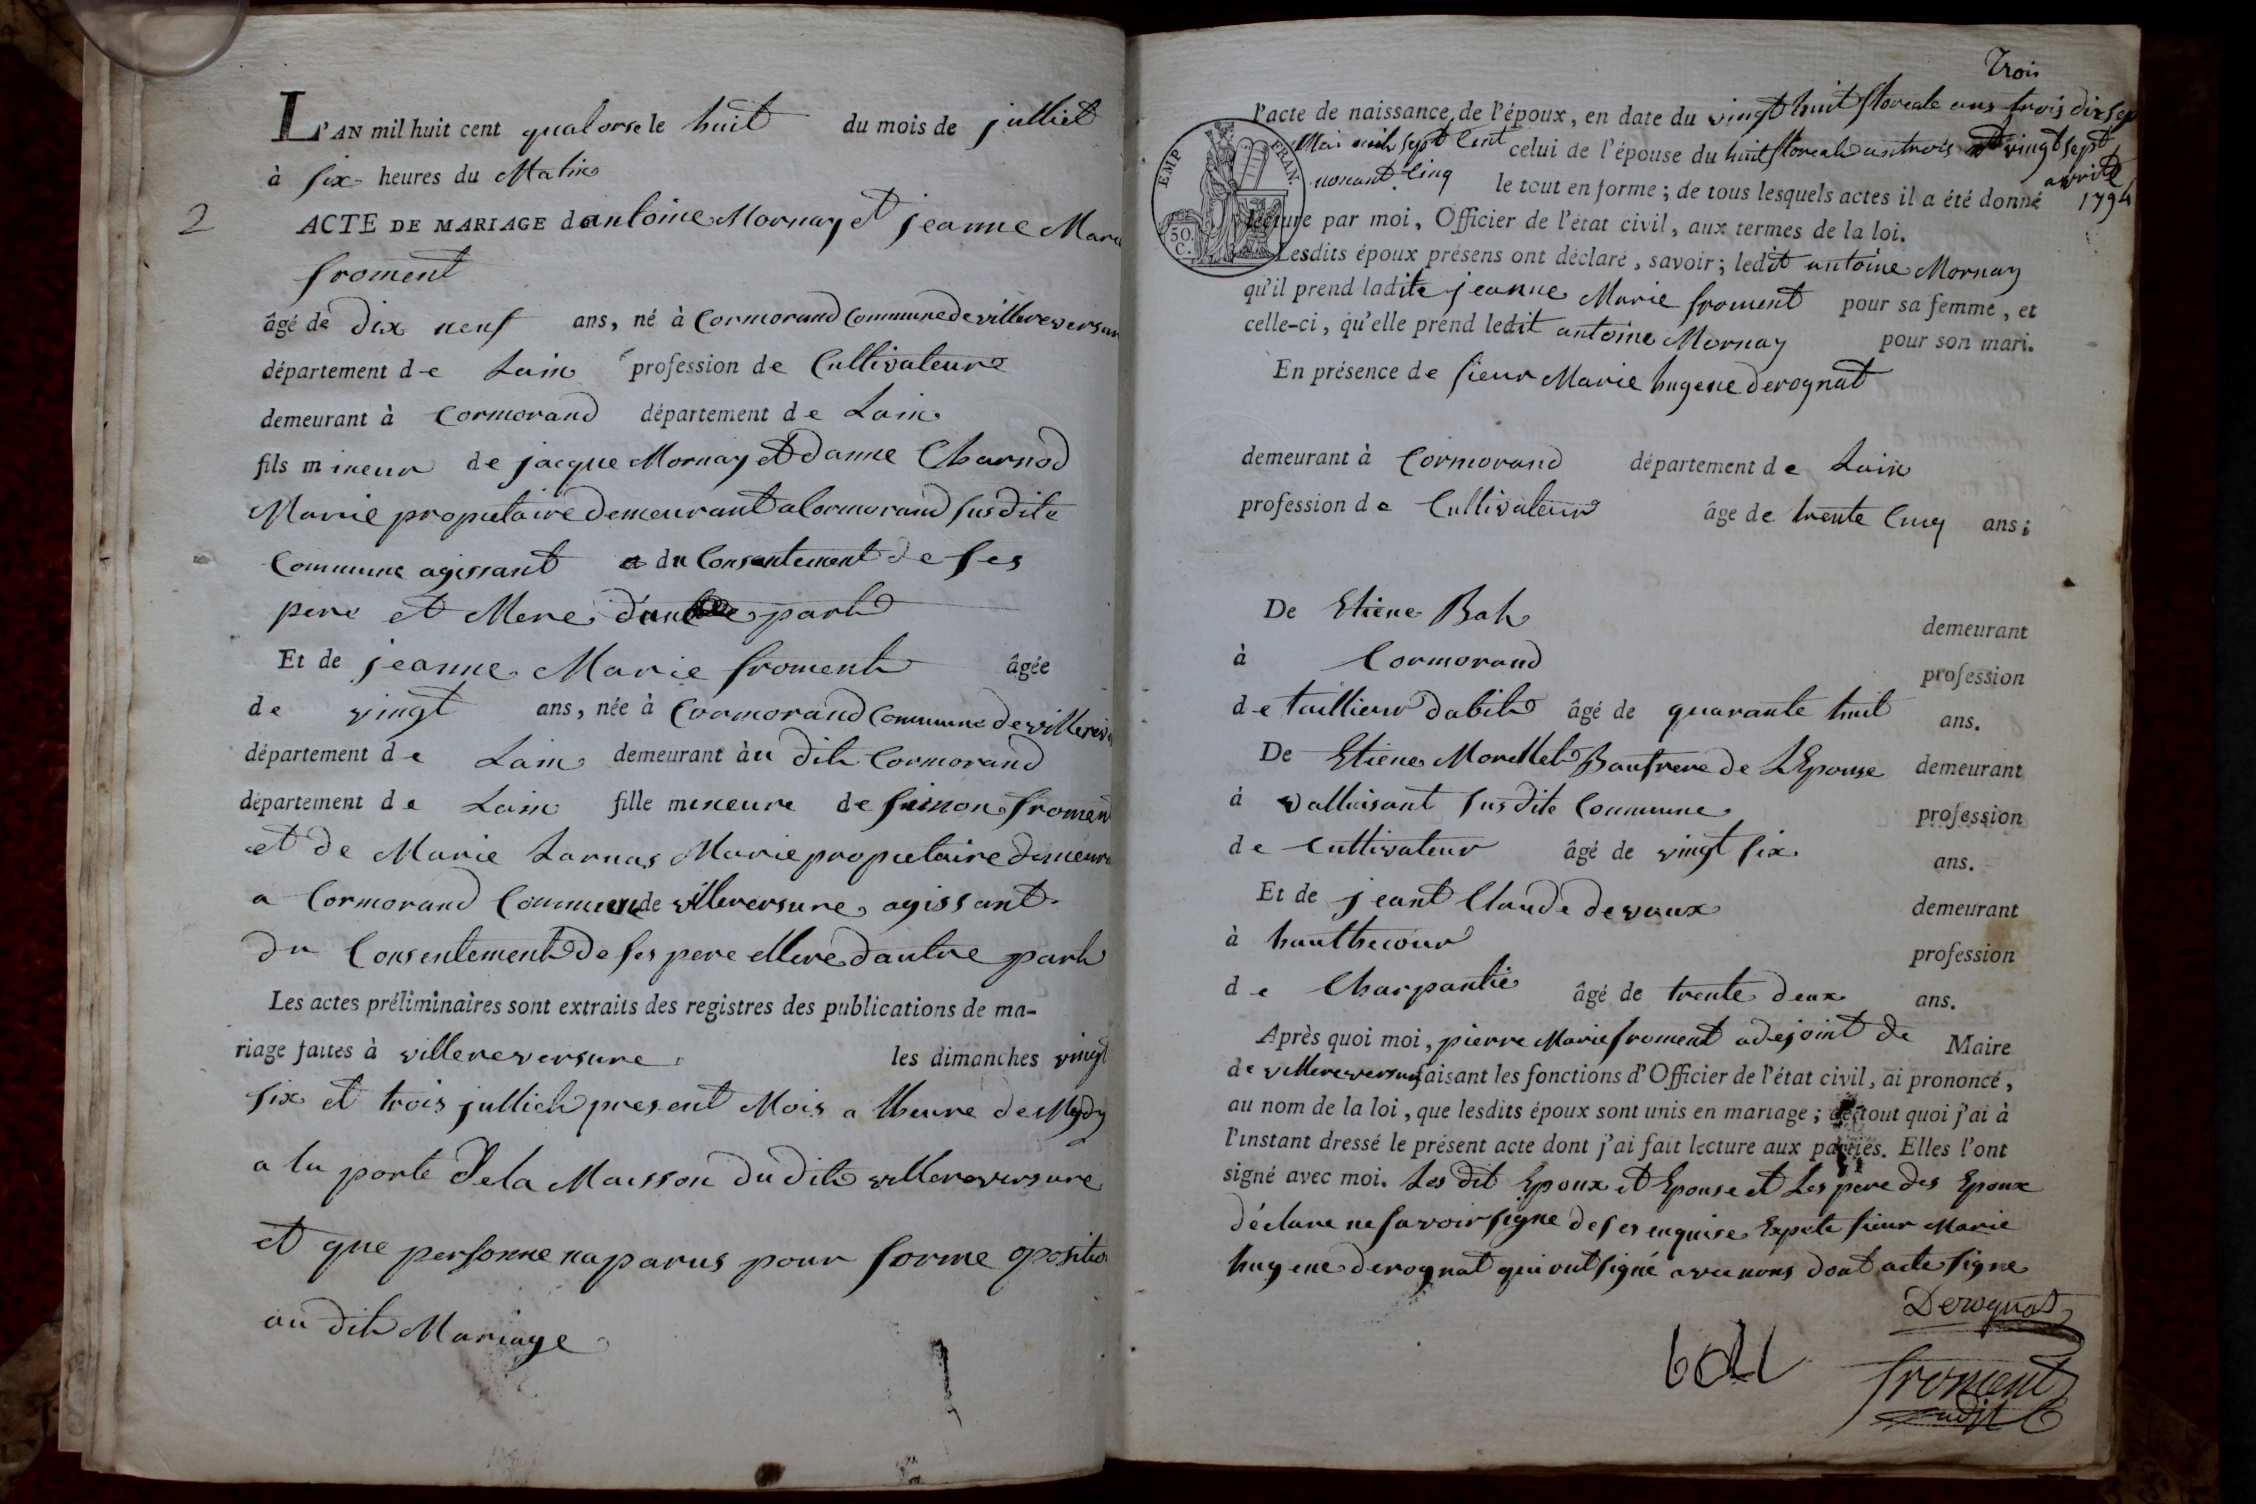 L'AN mil huit cent quatorse le huit du mois de julliet
à six heures du Matin
2
ACTE DE MARIAGE d antoine Mornay et jeanne Marie
froment
âgé de dix neuf ans, né à Cormorand Commune de villereversure
département de Lain profession de Cultivateure
demeurant à Cormorand département de Lain
fils mineur de jacque Mornay et danne Charnod
Marié propietaire demeurant a Cormorand susdite
Commune agissant du Consentement de ses
pere et Mere d'une part
Et de jeanne Marie froment âgée
de vingt ans, née à Cormorand Commune de villerev
département de Lain demeurant àu dit Cormorand
département de Lain fille mineure de simon froment
et de Marie Larnas Marie propietaire demeura
a Cormorand Commune de villereversure agissant
du Consentement de ses pere et Mere d'autre part
Les actes préliminaires sont extraits des registres des publications de ma-
riage faites à villereversure les dimanches vingt
six et trois julliet present Mois a lheure de Mydy
a la porte de la Maisson du dit villereversure
et que personne naparus pour forme opositio
au dit Mariage
Trois
l'acte de naissance de l'époux, en date du vingt huit floreale ans trois dix sep
Mai mil sept Cent celui de l'épouse du huit floreale an trois vingt sept
EMP. FRAN.
nonant Cinq le tout en forme ; de tous lesquels actes il a été donné avrile 1794
50 C.
lecture par moi, Officier de l'état civil, aux termes de la loi.
Lesdits époux présens ont déclaré, savoir ; ledit antoine Mornay
qu'il prend ladite jeanne Marie froment pour sa femme, et
celle-ci, qu'elle prend ledit antoine Mornay pour son mari.
En présence de sieur Marie hugene derognat
demeurant à Cormorand département de Lain
profession de Cultivateur âge de trente Cinq ans ;
De Etiene Bah demeurant
à Cormorand profession
de taillieur dabit âgé de quarante huit ans.
De Etiene Morellet Baufrere de LEpouse demeurant
à valluisant susdite Commune profession
de Cultivateur âgé de vingt six ans.
Et de jeant Claude devaux demeurant
à hauthecour profession
de Charpantié âgé de trente deux ans.
Après quoi moi, pierre Marie froment adejoint de Maire
de villereversure faisant les fonctions d'Officier de l'état civil, ai prononcé,
au nom de la loi, que lesdits époux sont unis en mariage ; de tout quoi j'ai à
l'instant dressé le présent acte dont j'ai fait lecture aux parties. Elles l'ont
signé avec moi. Les dit Epoux et Epouse et Les pere des Epoux
déclare ne savoir signe de ses enquise Expete sieur Marie
hugene derognat qui ont signé avec nous dont acte signe
Derognat
froment
adjt